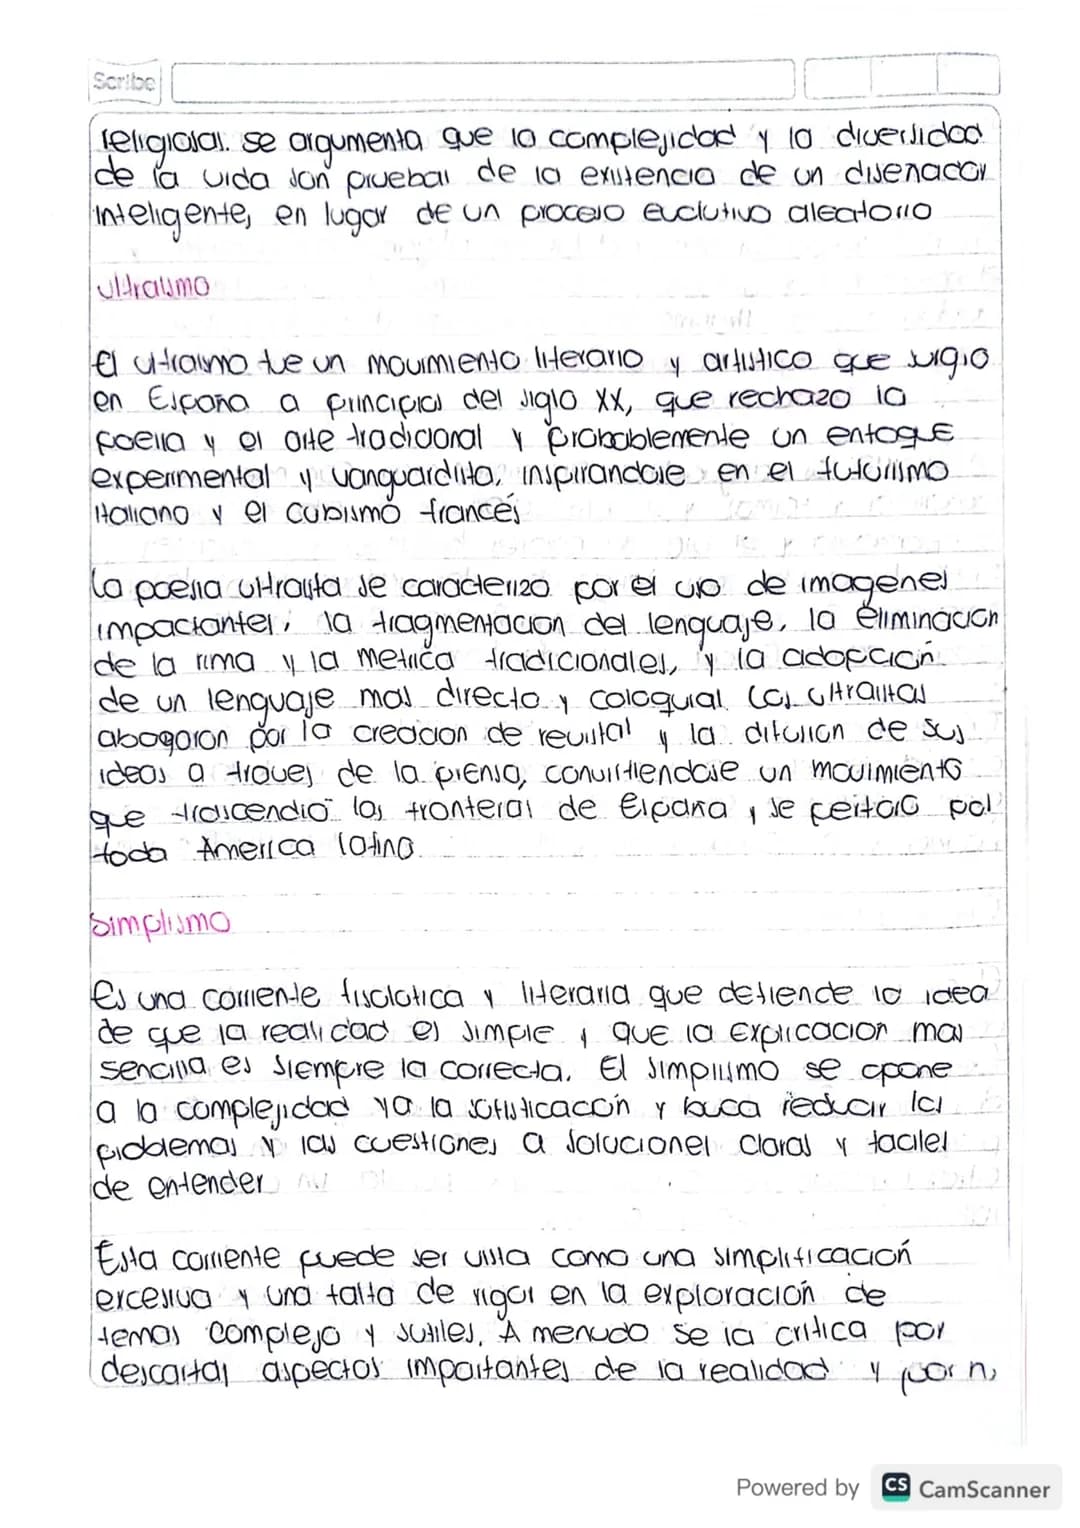 Scribe
religiosas. se argumenta que la complejidad y la diversidad
de la vida son pruebas de la existencia de un diseñador
inteligente, en lugar de un proceso evolutivo aleatorio
Ultraismo
El utraismo fue un movimiento literario y artistico que surgio
en España a principios del siglo XX, que rechazo la
poesia y el arte tradicional y probablemente un enfoque
experimental y vanguardista, inspirandose en el futurismo
italiano y el cubismo francés
La poesia ultraista se caracterizo por el uso de imagenes
impactantes, la fragmentacion del lenguaje, la eliminacion
de la rima y la metrica tradicionales, y la adopcion
de un lenguaje mas directo y coloquial. Los ultraistas
abogaron por la creacion de revistas y la difusion de sus
ideas a traves de la prensa, convirtiendose un movimiento
que trascendio las fronteras de España y se por
toda America latina.
Simplismo
Es una corriente y literaria que defiende la idea
de que la realidad es simple y que la explicacion mas
sencilla es siempre la correcta. El simplismo se opone
a la complejidad ya la sofisticación y busca reducir los
problemas y las cuestiones a soluciones claras y faciles
de entender
Esta corriente puede ser vista como una simplificación
excesiva y una falta de rigor en la exploración de
temas complejo y sutiles. A menudo se la critica por
descartas aspectos importantes de la realidad y por
Powered by CS CamScanner